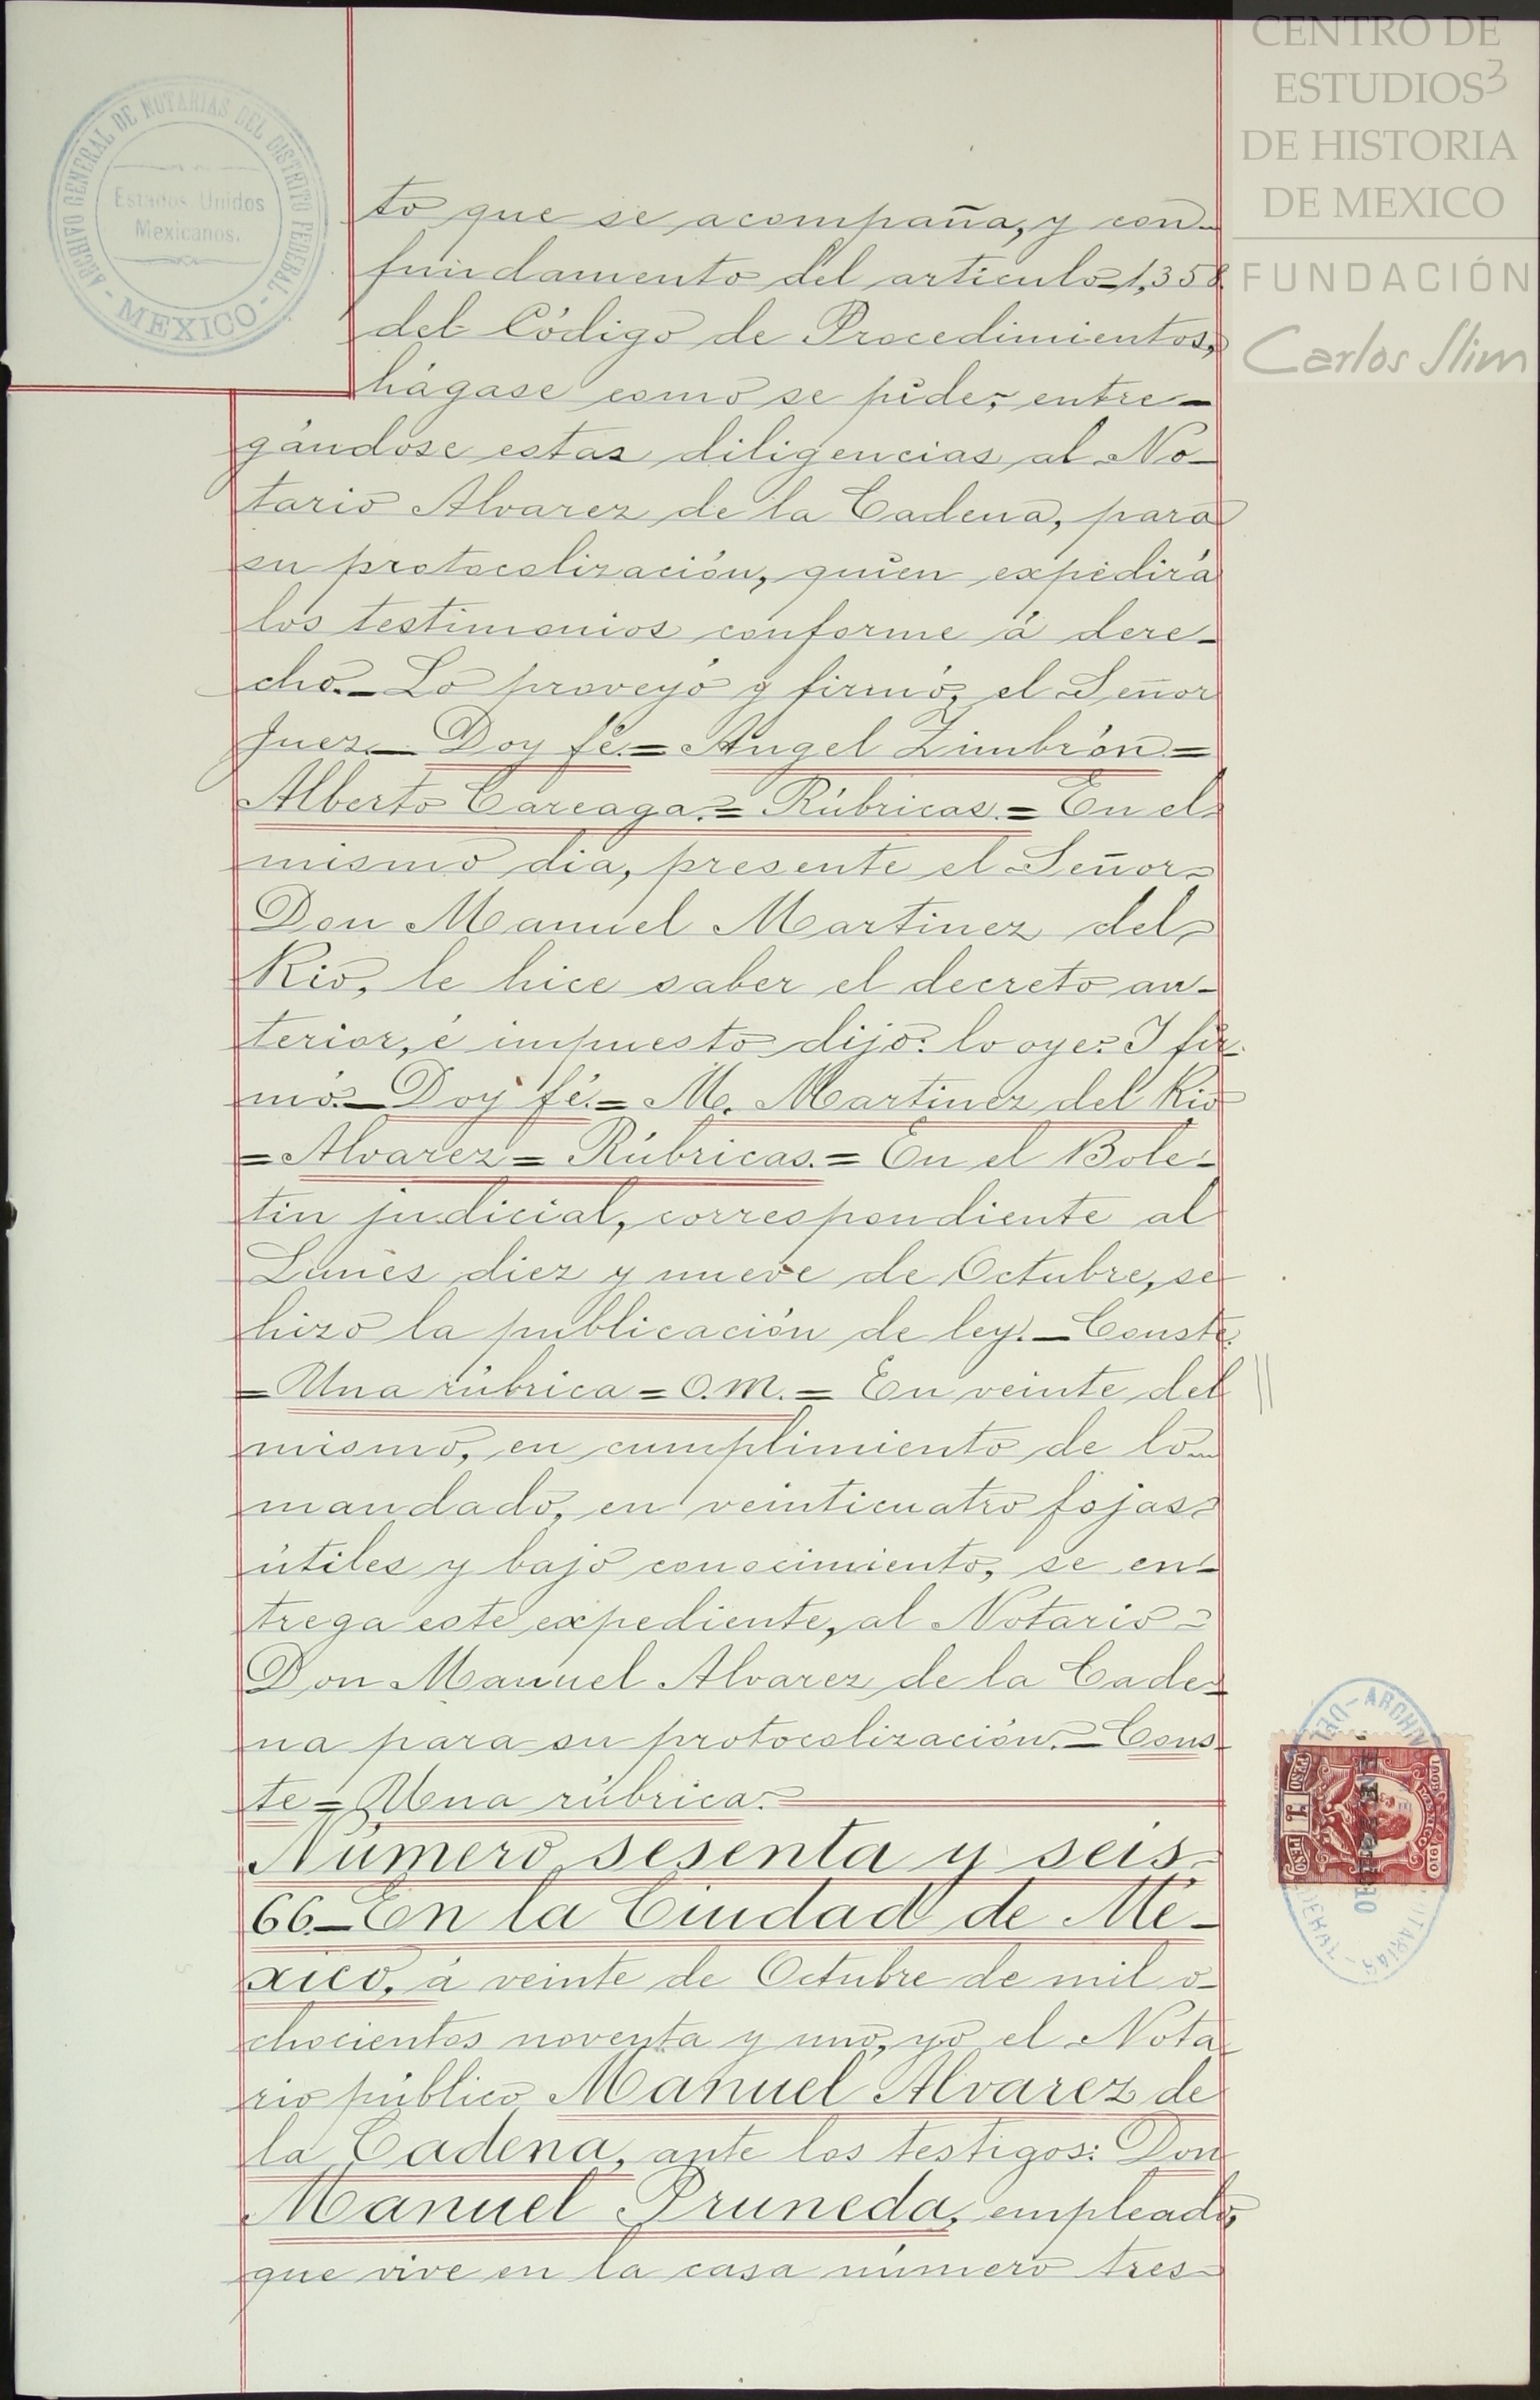 CENTRO DE
ESTUDIOS 3
DE HISTORIA
DE MEXICO
FUNDACIÓN
Carlos Slim
ARCHIVO GENERAL DE NOTARIAS DEL DISTRITO FEDERAL
- MEXICO -
Estados Unidos
Mexicanos.
to que se acompaña, y con
fundamento del artículo 1,358
del Código de Procedimientos,
hágase como se pide, entre-
gándose estas diligencias al No-
tario Alvarez de la Cadena, para
su protocolización, quien expedirá
los testimonios conforme á dere-
cho.- Lo proveyó y firmó, el Señor
Juez.- Doy fé.= Angel Zimbrón.=
Alberto Careaga.= Rúbricas.= En el
mismo dia, presente el Señor
Don Manuel Martinez del
Rio, le hice saber el decreto an-
terior, é impuesto dijo: lo oye. Y fir-
mó.- Doy fé.= M. Martinez del Rio
= Alvarez = Rúbricas.= En el Bole-
tin judicial, correspondiente al
Lunes diez y nueve de Octubre, se
hizo la publicación de ley.- Conste.
= Una rúbrica = O.M. = En veinte del
mismo, en cumplimiento de lo
mandado, en veinticuatro fojas
útiles y bajo conocimiento, se en-
trega este expediente, al Notario
Don Manuel Alvarez de la Cade-
na para su protocolización.- Cons-
te = Una rúbrica.
Número sesenta y seis
66.- En la Ciudad de Mé-
xico, á veinte de Octubre de mil o-
chocientos noventa y uno, yo el Nota-
rio público Manuel Alvarez de
la Cadena, ante los testigos: Don
Manuel Pruneda, empleado,
que vive en la casa número tres
PESO
1
PESO
MEXICO
1910